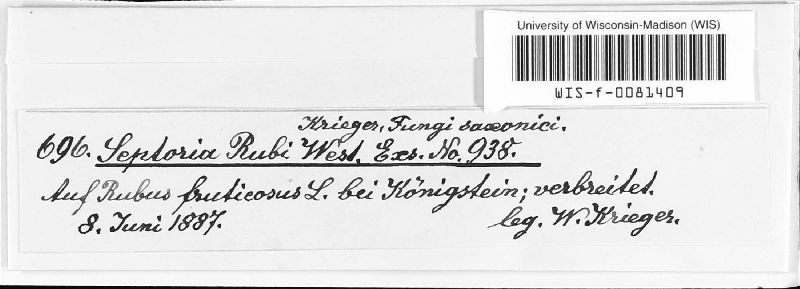 University of Wisconsin-Madison (WIS)
WIS-f-0081409
Krieger, Fungi saxonici.
696. Septoria Rubi West. Exs. No. 938.
Auf Rubus fruticosus L. bei Königstein; verbreitet.
8. Juni 1887.
leg. W. Krieger.